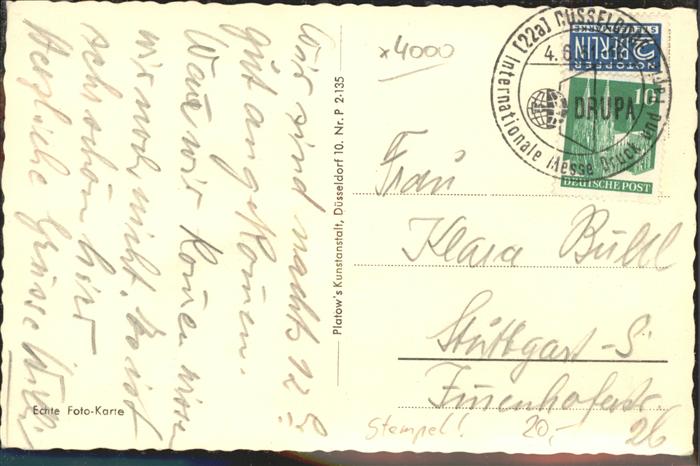 Wir sind nachts 12 h
gut angekommen.
Wann wir kommen wissen
wir noch nicht. Es ist
sehr schön hier
Herzliche Grüsse
Echte Foto-Karte
Platow's Kunstanstalt, Düsseldorf 10. Nr. P 2-135
x4000
[22a] DÜSSELDORF
4.6
Internationale Messe Druck und Papier
DRUPA
NOTOPFER
2 BERLIN
STEUERMARKE
10
DEUTSCHE POST
Frau
Klara
Stuttgart-S
26
Stempel! 20,-